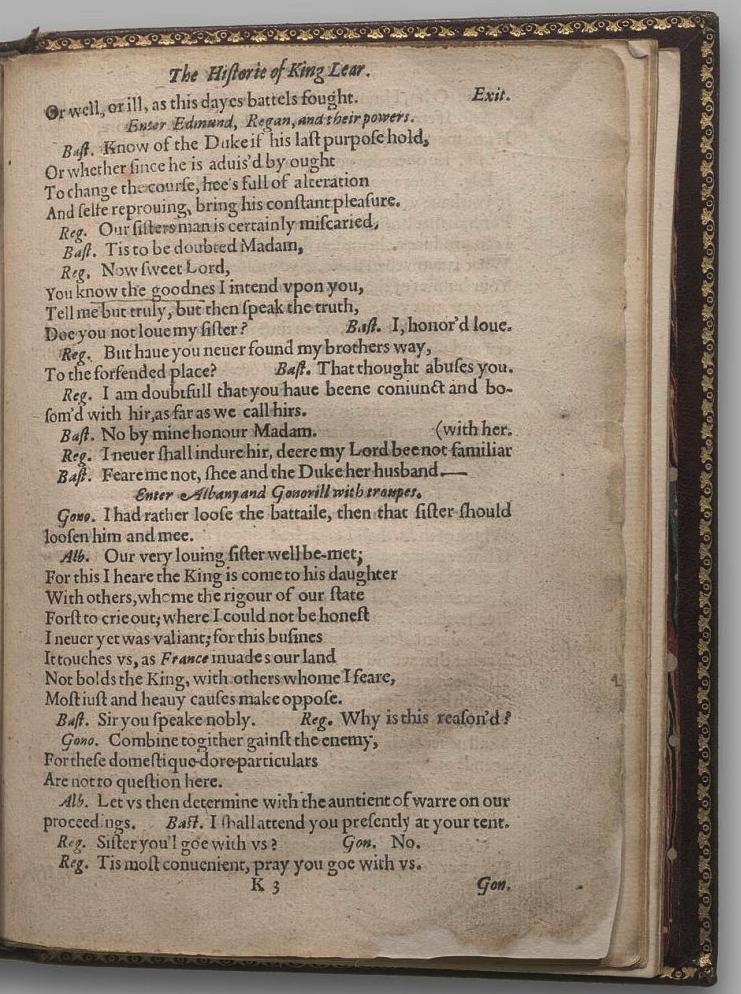 The Hiſtorie of King Lear.
Or well, or ill, as this dayes battels fought. Exit.
Enter Edmund, Regan, and their powers.
Baſt. Know of the Duke if his laſt purpoſe hold,
Or whether ſince he is aduis'd by ought
To change the courſe, hee's full of alteration
And ſelfe reprouing, bring his conſtant pleaſure.
Reg. Our ſiſters man is certainly miſcaried,
Baſt. Tis to be doubted Madam,
Reg. Now ſweet Lord,
You know the goodnes I intend vpon you,
Tell me but truly, but then ſpeak the truth,
Doe you not loue my ſiſter? Baſt. I, honor'd loue.
Reg. But haue you neuer found my brothers way,
To the forfended place? Baſt. That thought abuſes you.
Reg. I am doubtfull that you haue beene coniunct and bo-
ſom'd with hir, as far as we call hirs.
Baſt. No by mine honour Madam. (with her.
Reg. I neuer ſhall indure hir, deere my Lord bee not familiar
Baſt. Feare me not, ſhee and the Duke her husband.—
Enter Albany and Gonorill with troupes.
Gono. I had rather looſe the battaile, then that ſiſter ſhould
looſen him and mee.
Alb. Our very louing ſiſter well be-met;
For this I heare the King is come to his daughter
With others, whome the rigour of our ſtate
Forſt to crie out; where I could not be honeſt
I neuer yet was valiant; for this buſines
It touches vs, as France inuades our land
Not bolds the King, with others whome I feare,
Moſt iuſt and heauy cauſes make oppoſe.
Baſt. Sir you ſpeake nobly. Reg. Why is this reaſon'd?
Gono. Combine togither gainſt the enemy,
For theſe domeſtique dore particulars
Are not to queſtion here.
Alb. Let vs then determine with the auntient of warre on our
proceedings. Baſt. I ſhall attend you preſently at your tent.
Reg. Siſter you'l goe with vs? Gon. No.
Reg. Tis moſt conuenient, pray you goe with vs.
K 3 Gon.